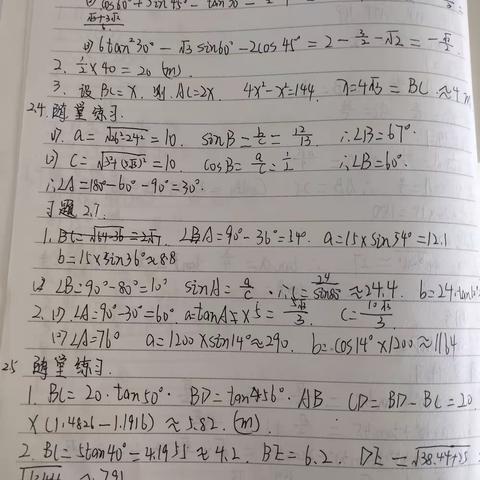 (2) cos60°+
√2+3√2
(3) 6tan²30° - √3 sin60° - 2cos45° = 2 - 3/2 - √2 =
2. 1/2 × 40 = 20 (m).
3. 设 BC = X. 则 AC = 2X. 4x² - x² = 144. x = 4√3 = BC ≈
2.4. 随堂练习.
(1). a = √26²-24² = 10. sinB = b/c = 12/13 ∴∠B = 67°.
(2) c = = 10. cosB = a/c = 1/2 ∴∠B = 60°.
∴∠A = 180° - 60° - 90° = 30°.
习题 2.7.
1. BC = √64-36 = 2√7. ∠A = 90° - 36° = 54°. a = 15 × sin54° = 12.1
b = 15 × sin36° ≈ 8.8
(2) ∠B = 90° - 80° = 10° sinA = a/c . ∴c = 24/sin80° ≈ 24.4. b = 24.tan10°
2. (1) ∠A = 90° - 30° = 60°. a = tanA × 5 = 5√3/3. c = 10√3/3.
(2) ∠A = 76° a = 1200 × sin14° ≈ 290. b = cos14° × 1200 ≈ 1164
2.5 随堂练习.
1. BC = 20 · tan50°. BD = tan56° · AB CD = BD - BC = 20
× (1.4826 - 1.1916) ≈ 5.82. (m).
2. BC = 5tan40° = 4.1955 ≈ 4.2. BE = 6.2. DE = √38.44+25 =
≈ 7.91